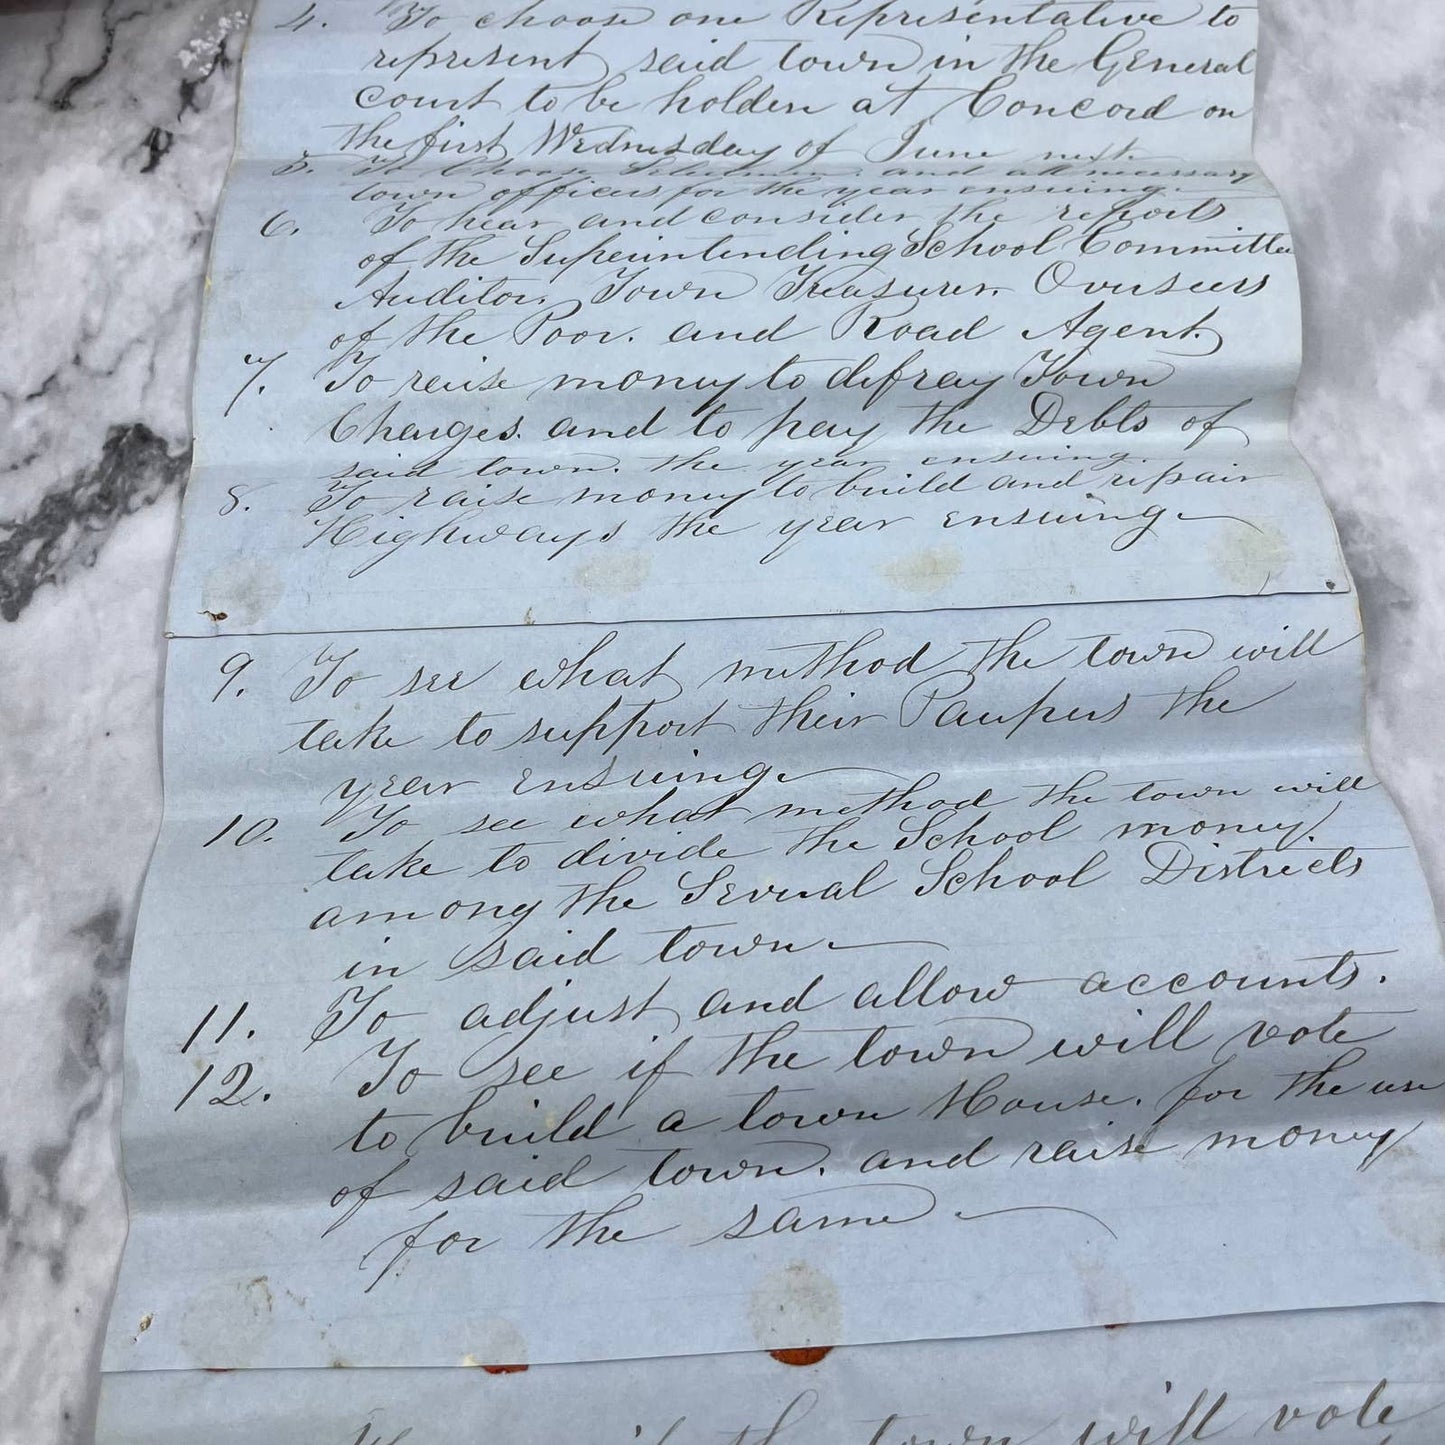 4. To choose one Representative to
represent said town in the General
court to be holden at Concord on
the first Wednesday of June next.
5. To Choose Selectmen. and all necessary
town officers for the year ensuing.
6. To hear and consider the reports
of the Superintending School Committee
Auditor. Town Treasurer. Overseers
of the Poor. and Road Agent.
7. To raise money to defray Town
Charges. and to pay the Debts of
said town. the year ensuing.
8. To raise money to build and repair
Highways the year ensuing.
9. To see what method the town will
take to support their Paupers the
year ensuing.
10. To see what method the town will
take to divide the School money.
among the Several School Districts
in said town.
11. To adjust and allow accounts.
12. To see if the town will vote
to build a town House. for the use
of said town. and raise money
for the same.
if the town will vote